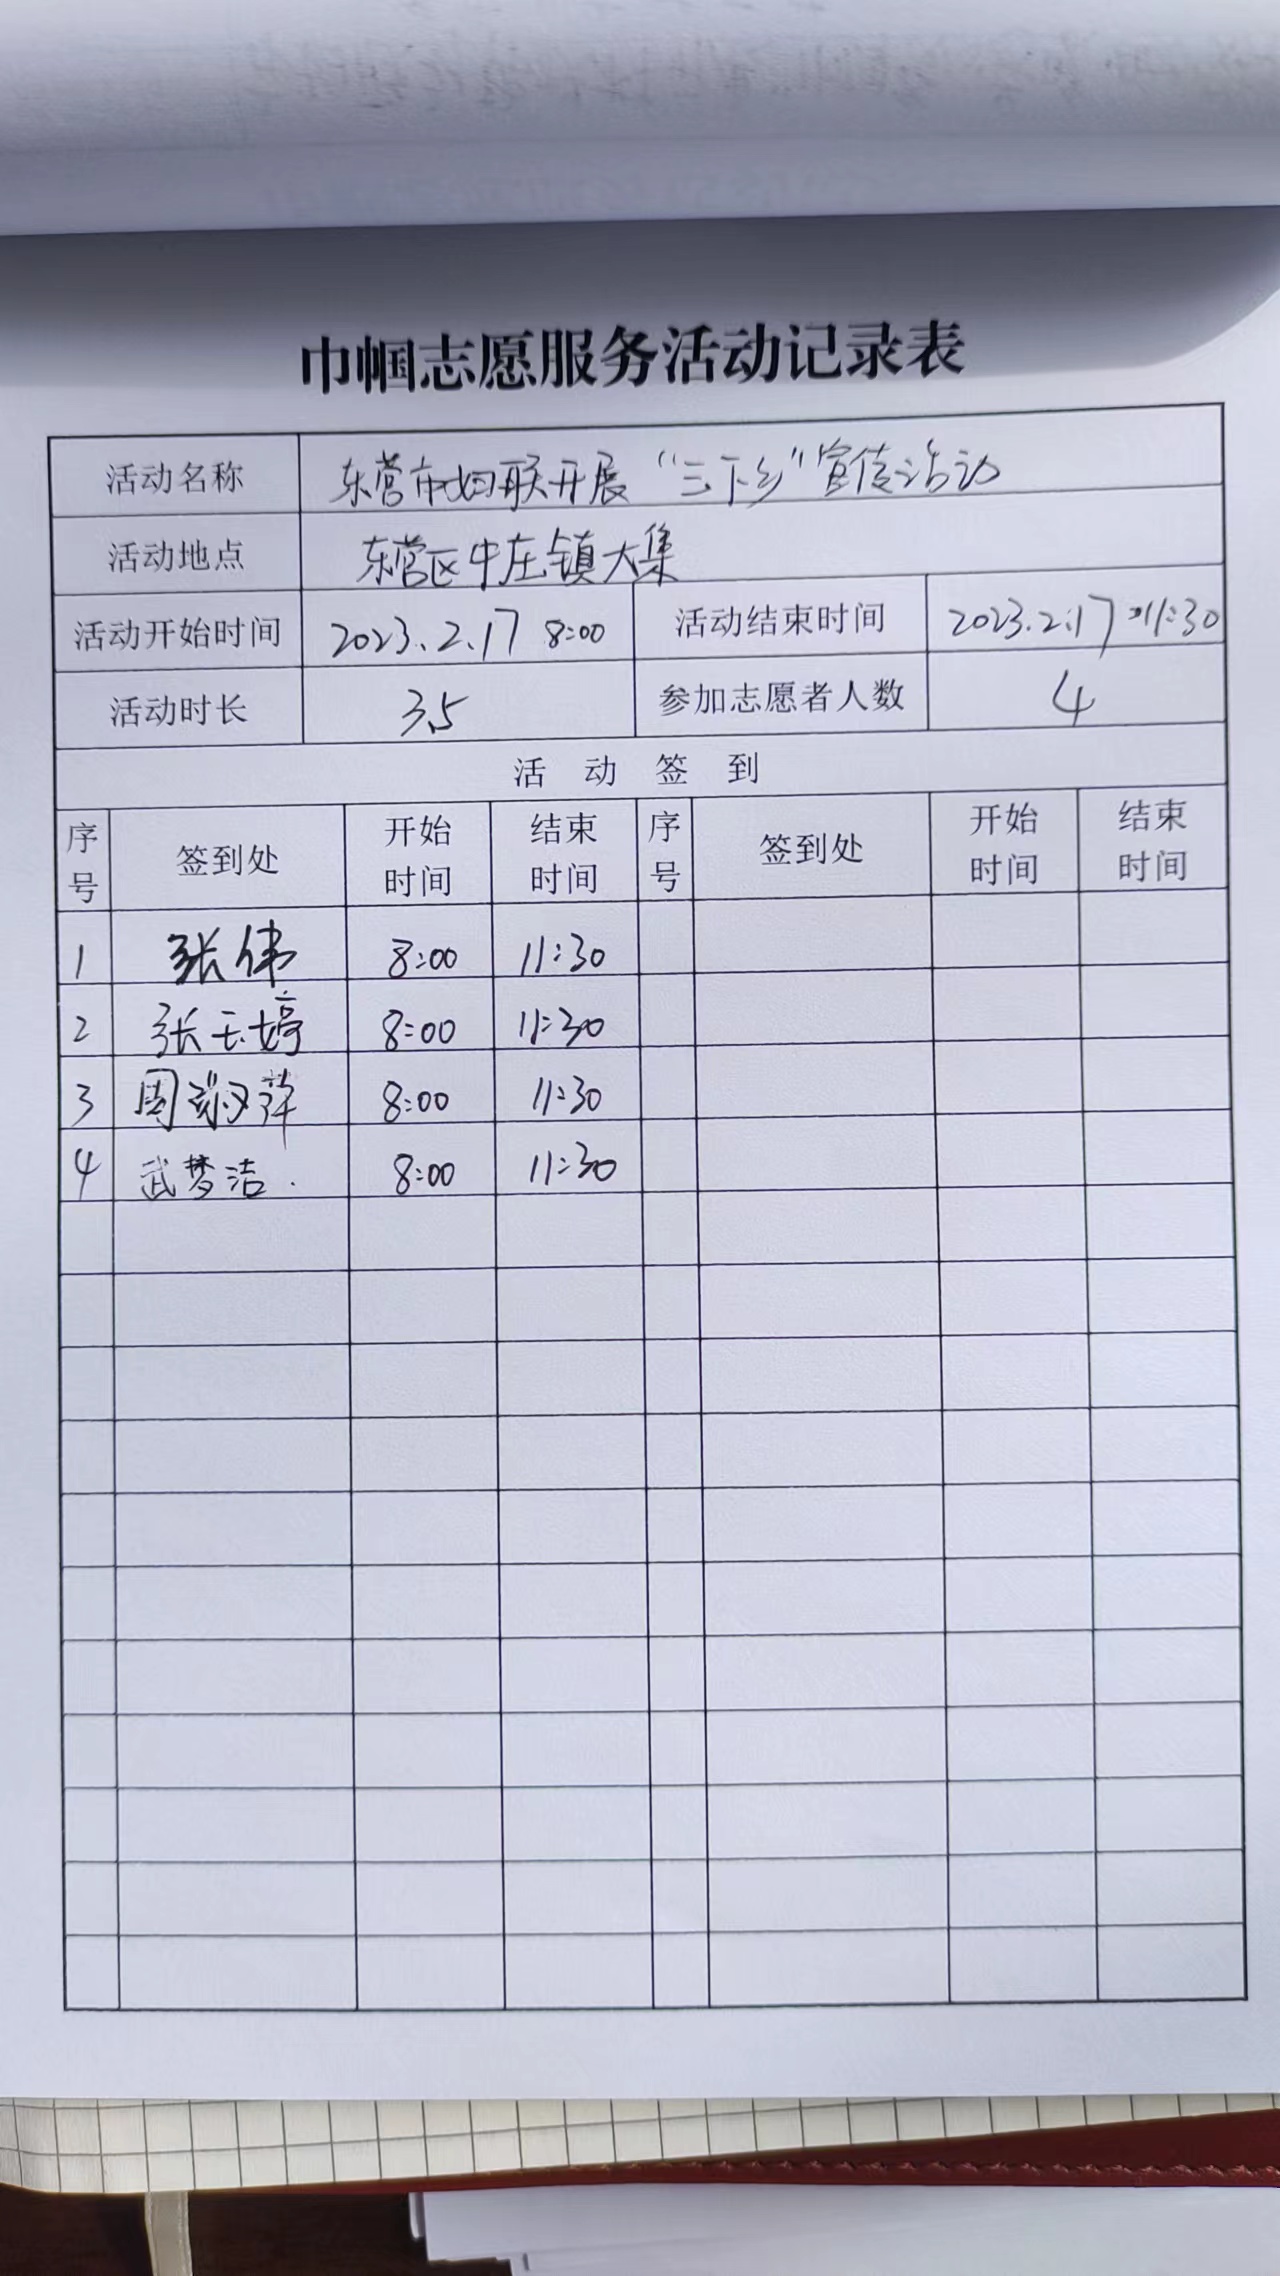 巾帼志愿服务活动记录表
活动名称 东营市妇联开展“三下乡”宣传活动
活动地点 东营区牛庄镇大集
活动开始时间 2023.2.17 8:00 活动结束时间 2023.2.17 11:30
活动时长 3.5 参加志愿者人数 4
活动签到
序号 签到处 开始时间 结束时间 序号 签到处 开始时间 结束时间
1 张伟 8:00 11:30
2 张玉婷 8:00 11:30
3 周 萍 8:00 11:30
4 武梦洁. 8:00 11:30